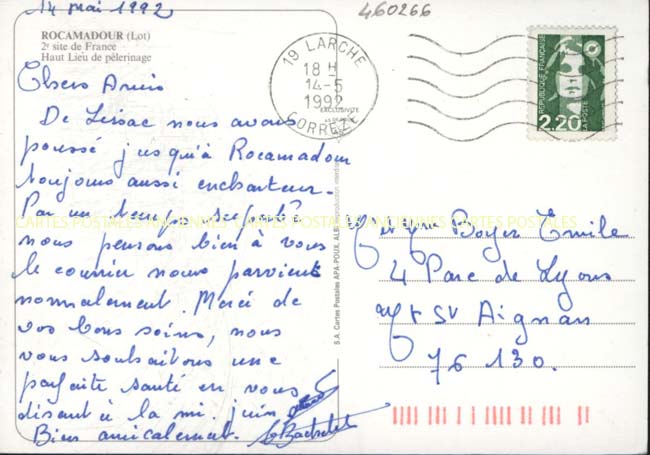 14 mai 1992
460266
ROCAMADOUR (Lot)
2e site de France
Haut Lieu de pèlerinage
Chers Amis
De Lissac nous avons
poussé jusqu'à Rocamadour
toujours aussi enchanteur.
Par un temps superbe
nous pensons bien à vous
le courrier nous parvient
normalement. Merci de
vos bons soins, nous
vous souhaitons une
parfaite santé en vous
disant à la mi-juin
Bien amicalement.
19 LARCHE
18 H
14-5
1992
CORREZE
REPUBLIQUE FRANÇAISE
2,20
LA POSTE
CARTES POSTALES ANCIENNES CARTES POSTALES ANCIENNES CARTES POSTALES
S.A. Cartes Postales APA-POUX, ALBI Reproduction interdite
Mr et Mme Boyer Emile
4 Parc de Lyons
Mt St Aignan
76 130.